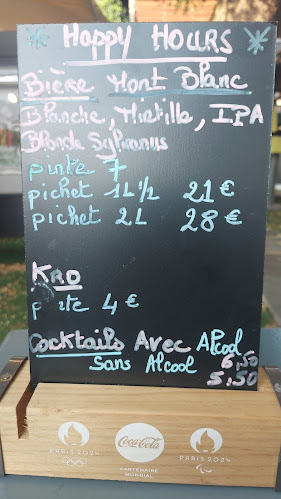 Happy Hours
Bière Mont Blanc
Blanche, Mirtille, IPA
Blonde Sylvanus
pinte 7
pichet 1L 1/2 21 €
pichet 2L 28 €
KRO
pinte 4 €
Cocktails Avec Alcool 6,50
Sans Alcool 5,50
PARIS 2024
Coca-Cola
PARTENAIRE
MONDIAL
PARIS 2024